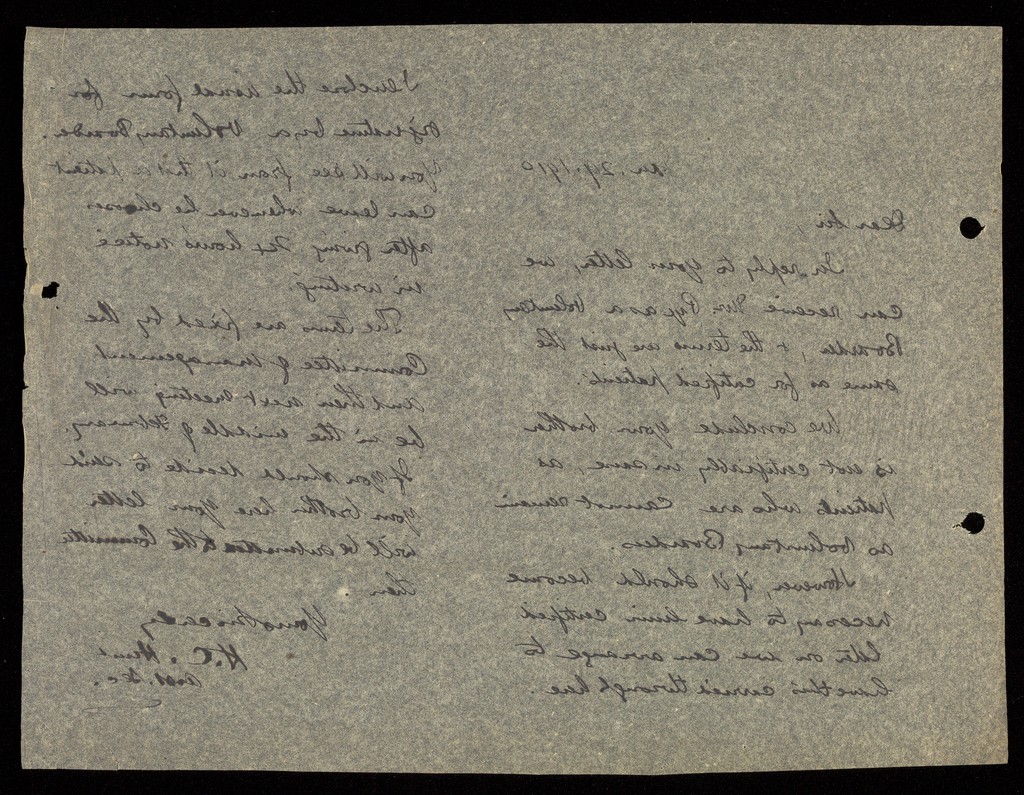 Jan. 29. 1910
Dear Sir,
In reply to your letter, we
can receive Mr. Pye as a Voluntary
Boarder, & the terms are just the
same as for certified patients.
We conclude your brother
is not certifiably insane, as
patients who are cannot remain
as Voluntary Boarders.
However, if it should become
necessary to have him certified
later on we can arrange to
have this carried through here.
I enclose the usual form for
signature by a Voluntary Boarder.
You will see from it that a patient
can leave whenever he chooses
after giving 24 hours notice
in writing.
The terms are fixed by the
Committee of Management
and their next meeting will
be in the middle of February.
If you should decide to send
your brother here your letter
will be submitted to the Committee
then
Yours sincerely
H.C.
Asst. Sec.